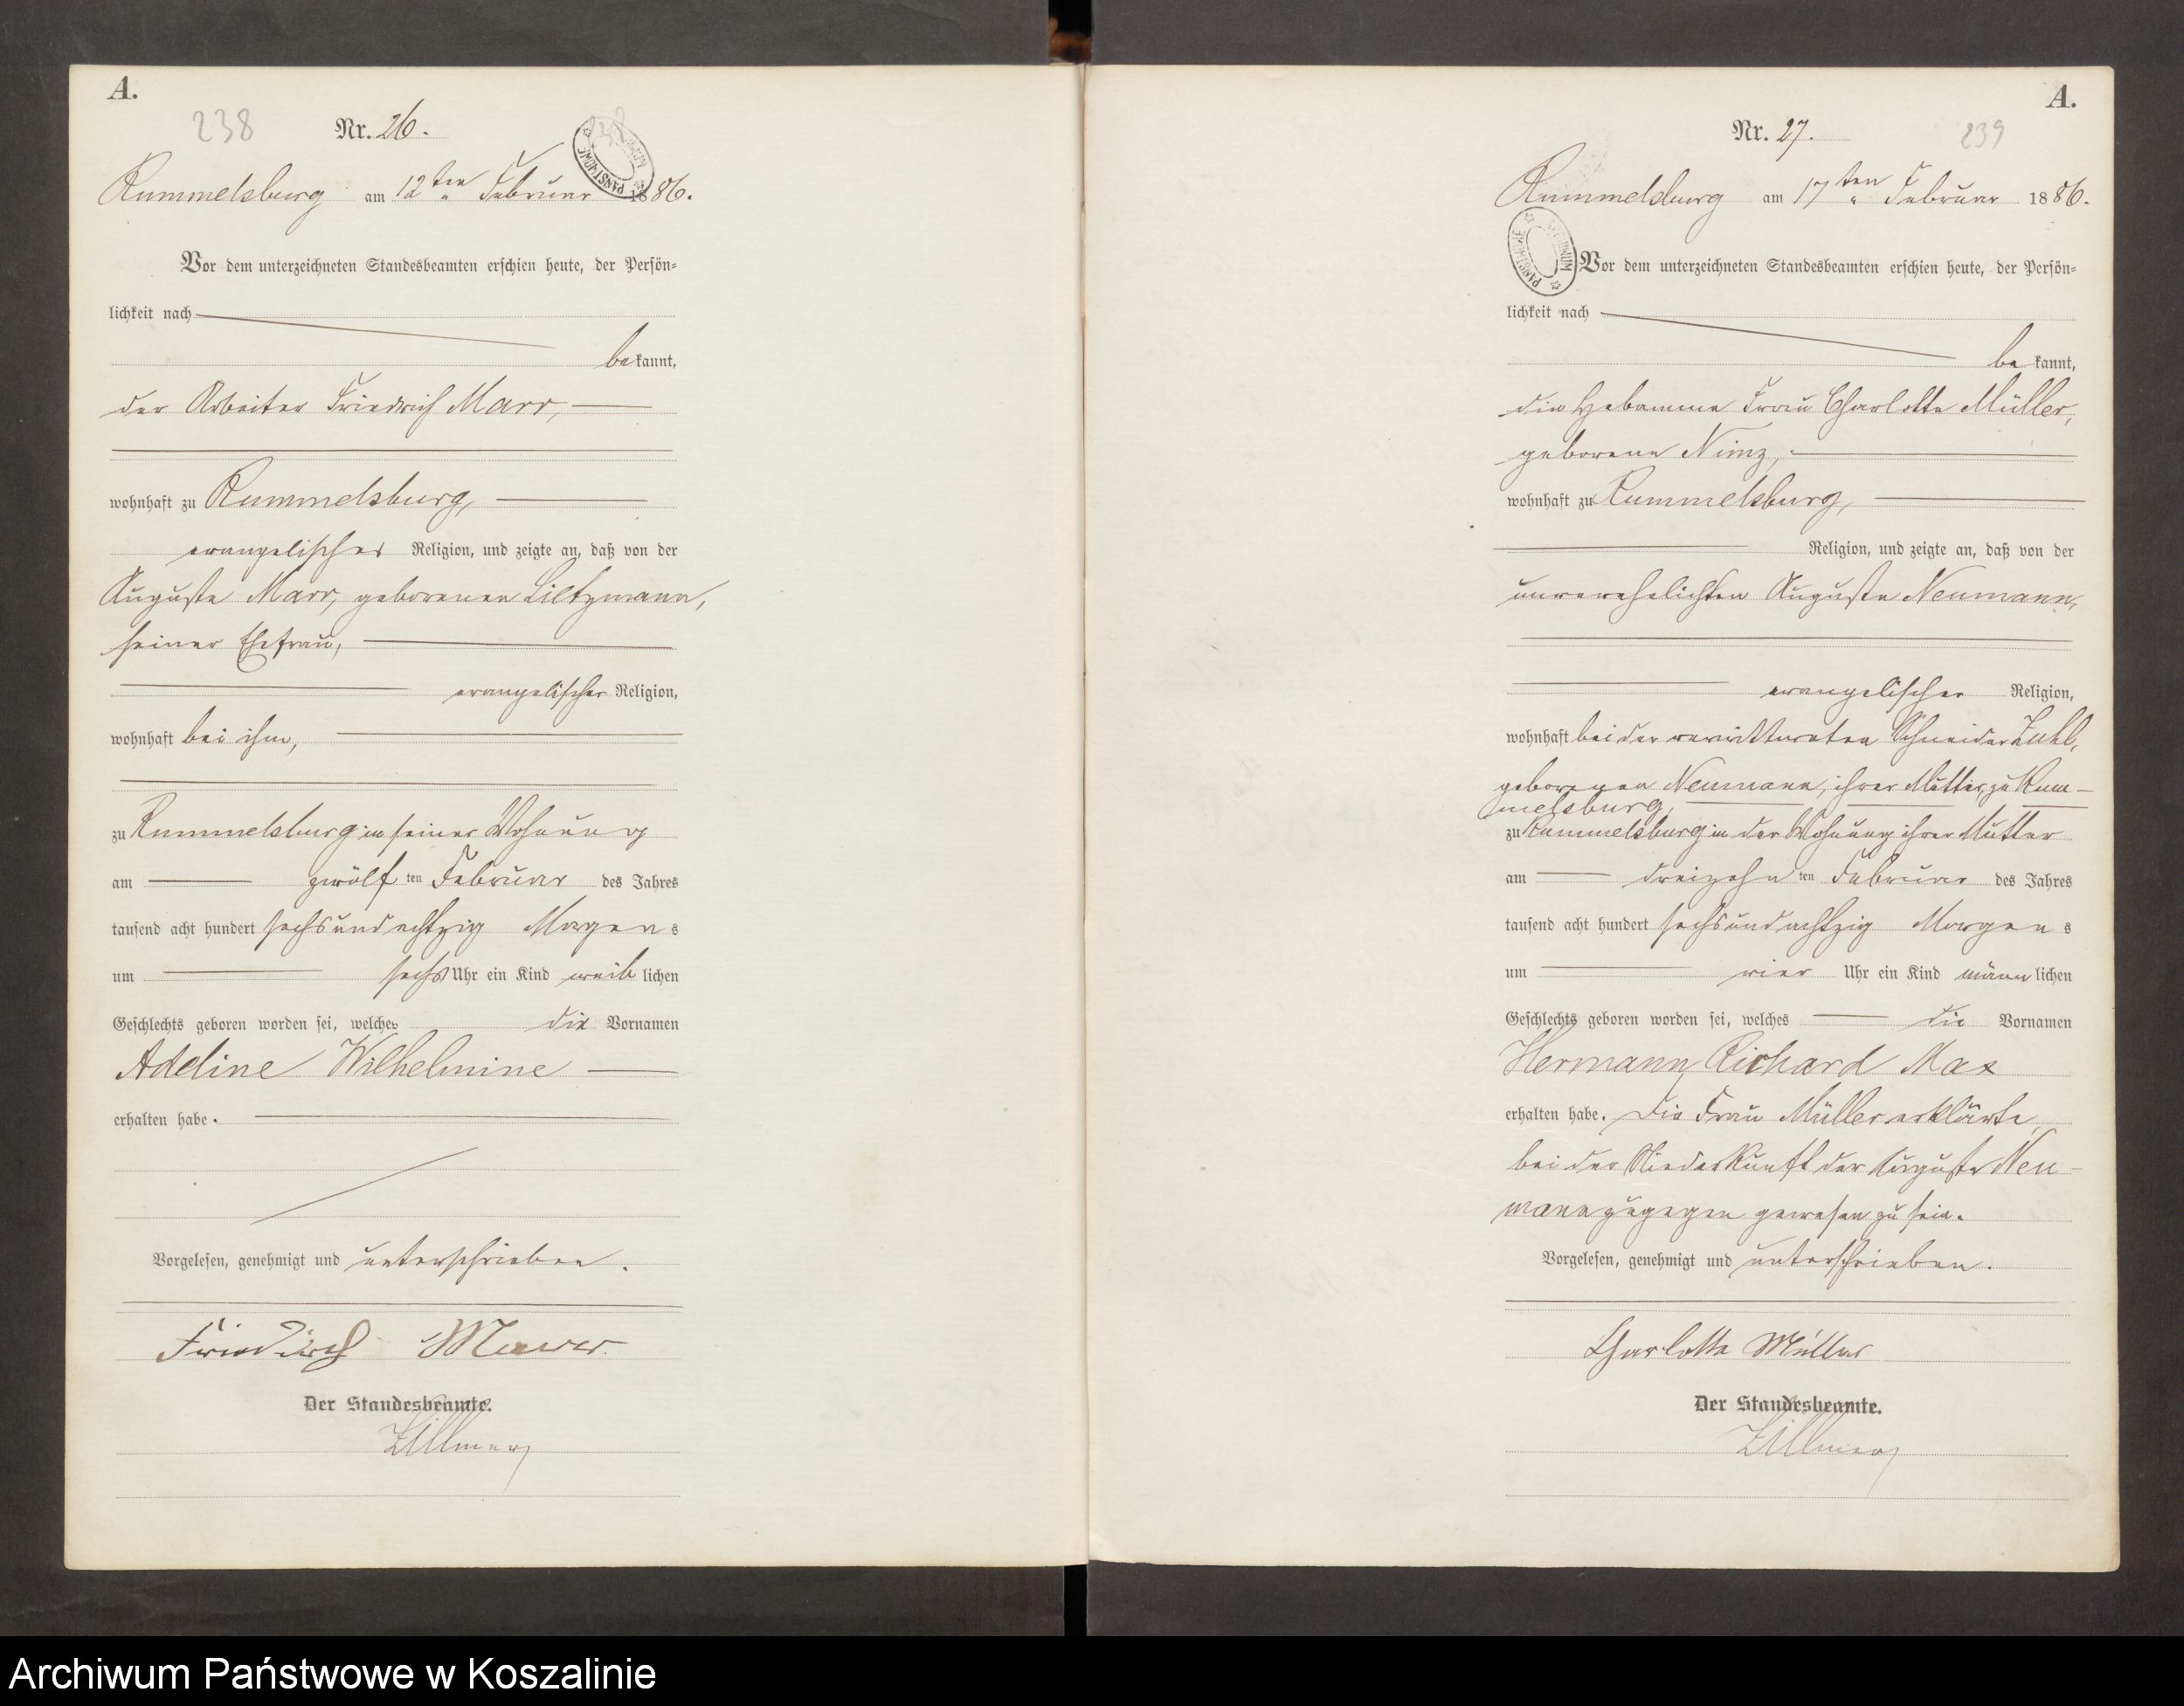 A.
238
Nr. 26.
Rummelsburg am 12ten Februar 1886.
Vor dem unterzeichneten Standesbeamten erschien heute, der Persön=
lichkeit nach
bekannt,
der Arbeiter Friedrich Marr,
wohnhaft zu Rummelsburg,
evangelischer Religion, und zeigte an, daß von der
Auguste Marr, geborenen Lietzmann,
seiner Ehefrau,
evangelischer Religion,
wohnhaft bei ihm,
zu Rummelsburg in seiner Wohnung
am zwölften Februar des Jahres
tausend acht hundert sechsundachtzig Morgens
um sechs Uhr ein Kind weiblichen
Geschlechts geboren worden sei, welches die Vornamen
Adeline Wilhelmine
erhalten habe.
Vorgelesen, genehmigt und unterschrieben.
Friedrich Marr.
Der Standesbeamte.
Zillmer
A.
Nr. 27.
239
Rummelsburg am 17ten Februar 1886.
Vor dem unterzeichneten Standesbeamten erschien heute, der Persön=
lichkeit nach
bekannt,
die Hebamme Frau Charlotte Müller,
geborene Nimz,
wohnhaft zu Rummelsburg,
Religion, und zeigte an, daß von der
unverehelichten Auguste Neumann,
evangelischer Religion,
wohnhaft bei der verwittweten Schneider Zuhl,
geborenen Neumann, ihrer Mutter, zu Rum-
melsburg,
zu Rummelsburg in der Wohnung ihrer Mutter
am dreizehnten Februar des Jahres
tausend acht hundert sechsundachtzig Morgens
um vier Uhr ein Kind männlichen
Geschlechts geboren worden sei, welches die Vornamen
Hermann Richard Max
erhalten habe. Die Frau Müller erklärte,
bei der Niederkunft der Auguste Neu-
mann zugegen gewesen zu sein.
Vorgelesen, genehmigt und unterschrieben.
Charlotte Müller
Der Standesbeamte.
Zillmer
Archiwum Państwowe w Koszalinie